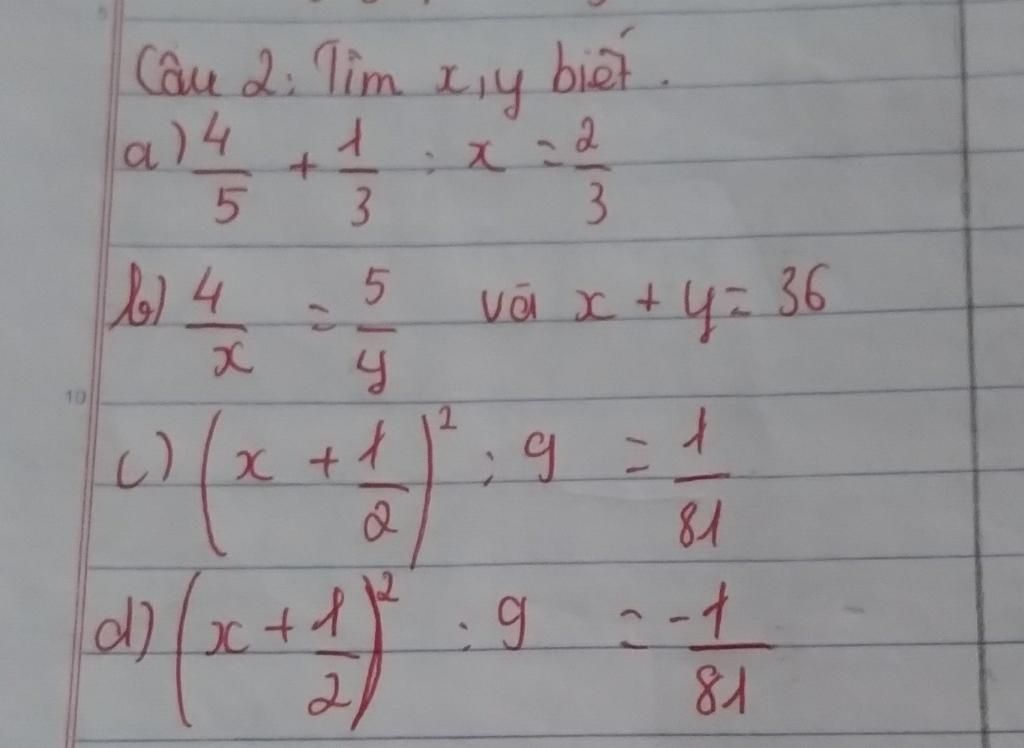 Câu 2: Tìm x, y biết.
a) 4/5 + 1/3 : x = 2/3
b) 4/x = 5/y và x + y = 36
c) (x + 1/2)² : 9 = 1/81
10
d) (x + 1/2)² : 9 = -1/81